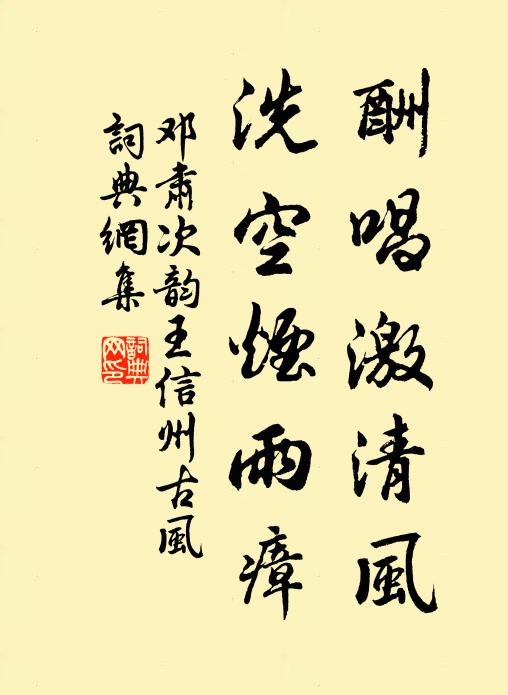 酬唱激清风
洗空煙雨瘴
邓肃次韵王信州古風
詞典網集
詞典網印